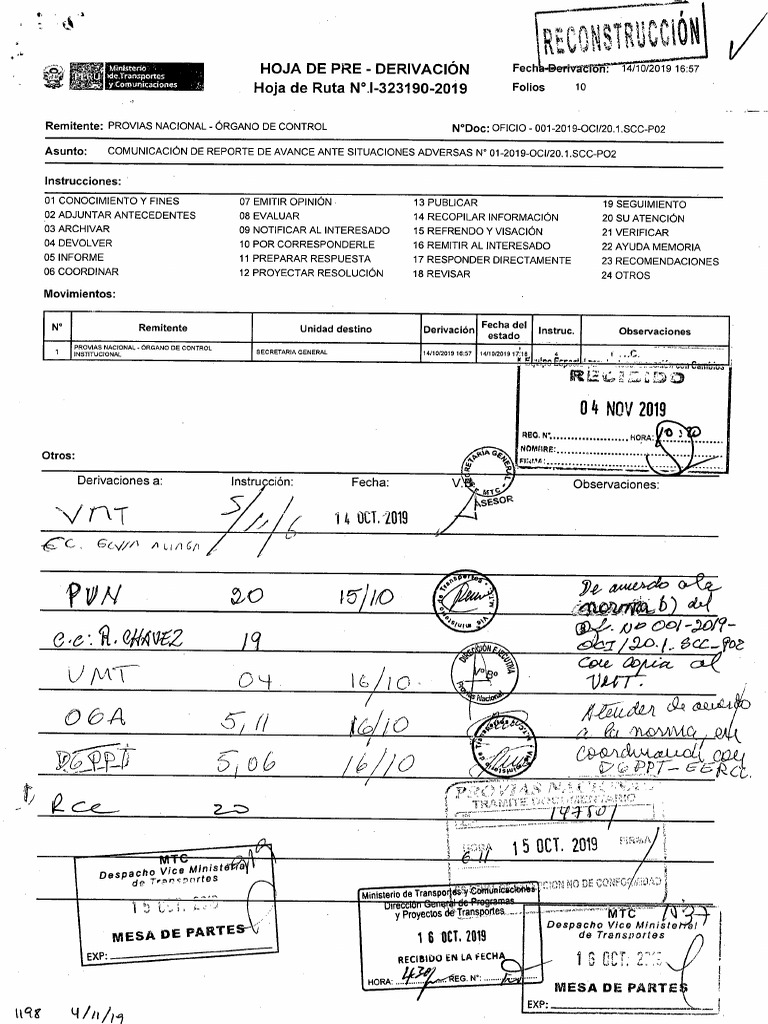 RECONSTRUCCIÓN
PERÚ
Ministerio
de Transportes
y Comunicaciones
HOJA DE PRE - DERIVACIÓN
Hoja de Ruta N°.I-323190-2019
Fecha Derivación: 14/10/2019 16:57
Folios 10
Remitente: PROVIAS NACIONAL - ÓRGANO DE CONTROL
N°Doc: OFICIO - 001-2019-OCI/20.1.SCC-P02
Asunto: COMUNICACIÓN DE REPORTE DE AVANCE ANTE SITUACIONES ADVERSAS N° 01-2019-OCI/20.1.SCC-PO2
Instrucciones:
01 CONOCIMIENTO Y FINES 07 EMITIR OPINIÓN 13 PUBLICAR 19 SEGUIMIENTO
02 ADJUNTAR ANTECEDENTES 08 EVALUAR 14 RECOPILAR INFORMACIÓN 20 SU ATENCIÓN
03 ARCHIVAR 09 NOTIFICAR AL INTERESADO 15 REFRENDO Y VISACIÓN 21 VERIFICAR
04 DEVOLVER 10 POR CORRESPONDERLE 16 REMITIR AL INTERESADO 22 AYUDA MEMORIA
05 INFORME 11 PREPARAR RESPUESTA 17 RESPONDER DIRECTAMENTE 23 RECOMENDACIONES
06 COORDINAR 12 PROYECTAR RESOLUCIÓN 18 REVISAR 24 OTROS
Movimientos:
N° Remitente Unidad destino Derivación Fecha del estado Instruc. Observaciones
1 PROVIAS NACIONAL - ÓRGANO DE CONTROL INSTITUCIONAL SECRETARIA GENERAL 14/10/2019 16:57 14/10/2019 17:18 4
RECIBIDO
04 NOV 2019
REG. N° HORA: 10:30
NOMBRE:
FIRMA:
Otros:
Derivaciones a: Instrucción: Fecha: V.B. Observaciones:
SECRETARÍA GENERAL
MTC
ASESOR
VMT 5/11/6 14 OCT. 2019
PVN 20 15/10
De acuerdo a la
norma b) del
Of. Nº 001-2019-
OCI/20.1.SCC-P02
con copia al
VMT.
c.c: R. CHAVEZ 19
DIRECCIÓN EJECUTIVA
VºBº
Provias Nacional
VMT 04 16/10
OGA 5,11 16/10
Atender de acuerdo
a la norma, en
coordinando con
DGPPT-EERCC.
DGPPT 5,06 16/10
RCC 20
PROVIAS NACIONAL
TRAMITE DOCUMENTARIO
HORA 15 OCT. 2019 FIRMA
MTC
Despacho Vice Ministerial
de Transportes
15 OCT. 2019
MESA DE PARTES
EXP:
Ministerio de Transportes y Comunicaciones
Dirección General de Programas
y Proyectos de Transportes
16 OCT. 2019
RECIBIDO EN LA FECHA
HORA: REG. N°:
MTC Nº37
Despacho Vice Ministerial
de Transportes
16 OCT. 2019
MESA DE PARTES
EXP:
1198 4/11/19